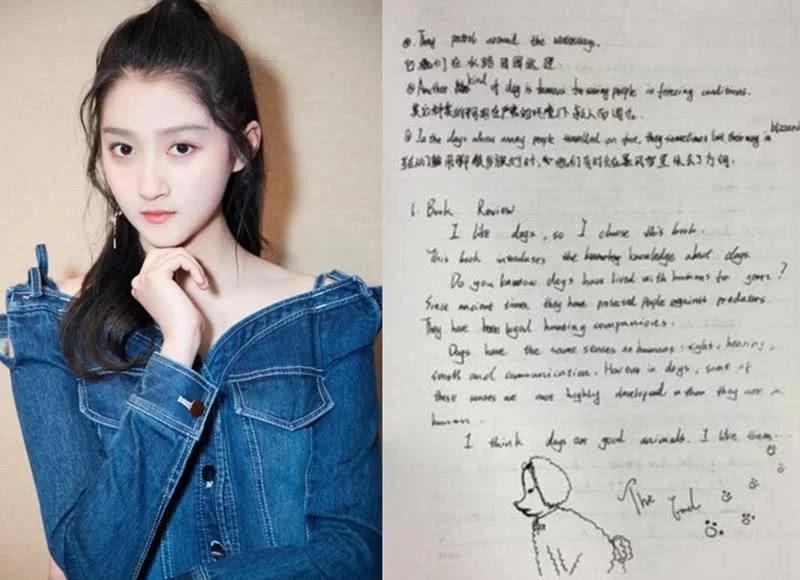 ⊗. They patrol around the waterway.
它们在水路周围巡逻.
⊗ Another kind of dog is famous for saving people in freezing conditions.
其它种类的狗因在严寒的环境下救人而闻名.
⊗ In the days when many people travelled on foot, they sometimes lost their way in blizzard
在人们用脚
他们有时候在暴风雪里失去了方向.
1. Book Review
I like dogs, so I choose this book.
This book introduces the knowledge about dogs.
Do you know dogs have lived with humans for years?
Since ancient times they have protected people against predators.
They have been loyal hunting companions.
Dogs have the same senses as humans: sight, hearing,
smell and communication. However in dogs, some of
these senses are more highly developed than they are in
human.
I think dogs are good animals. I like them.
The End